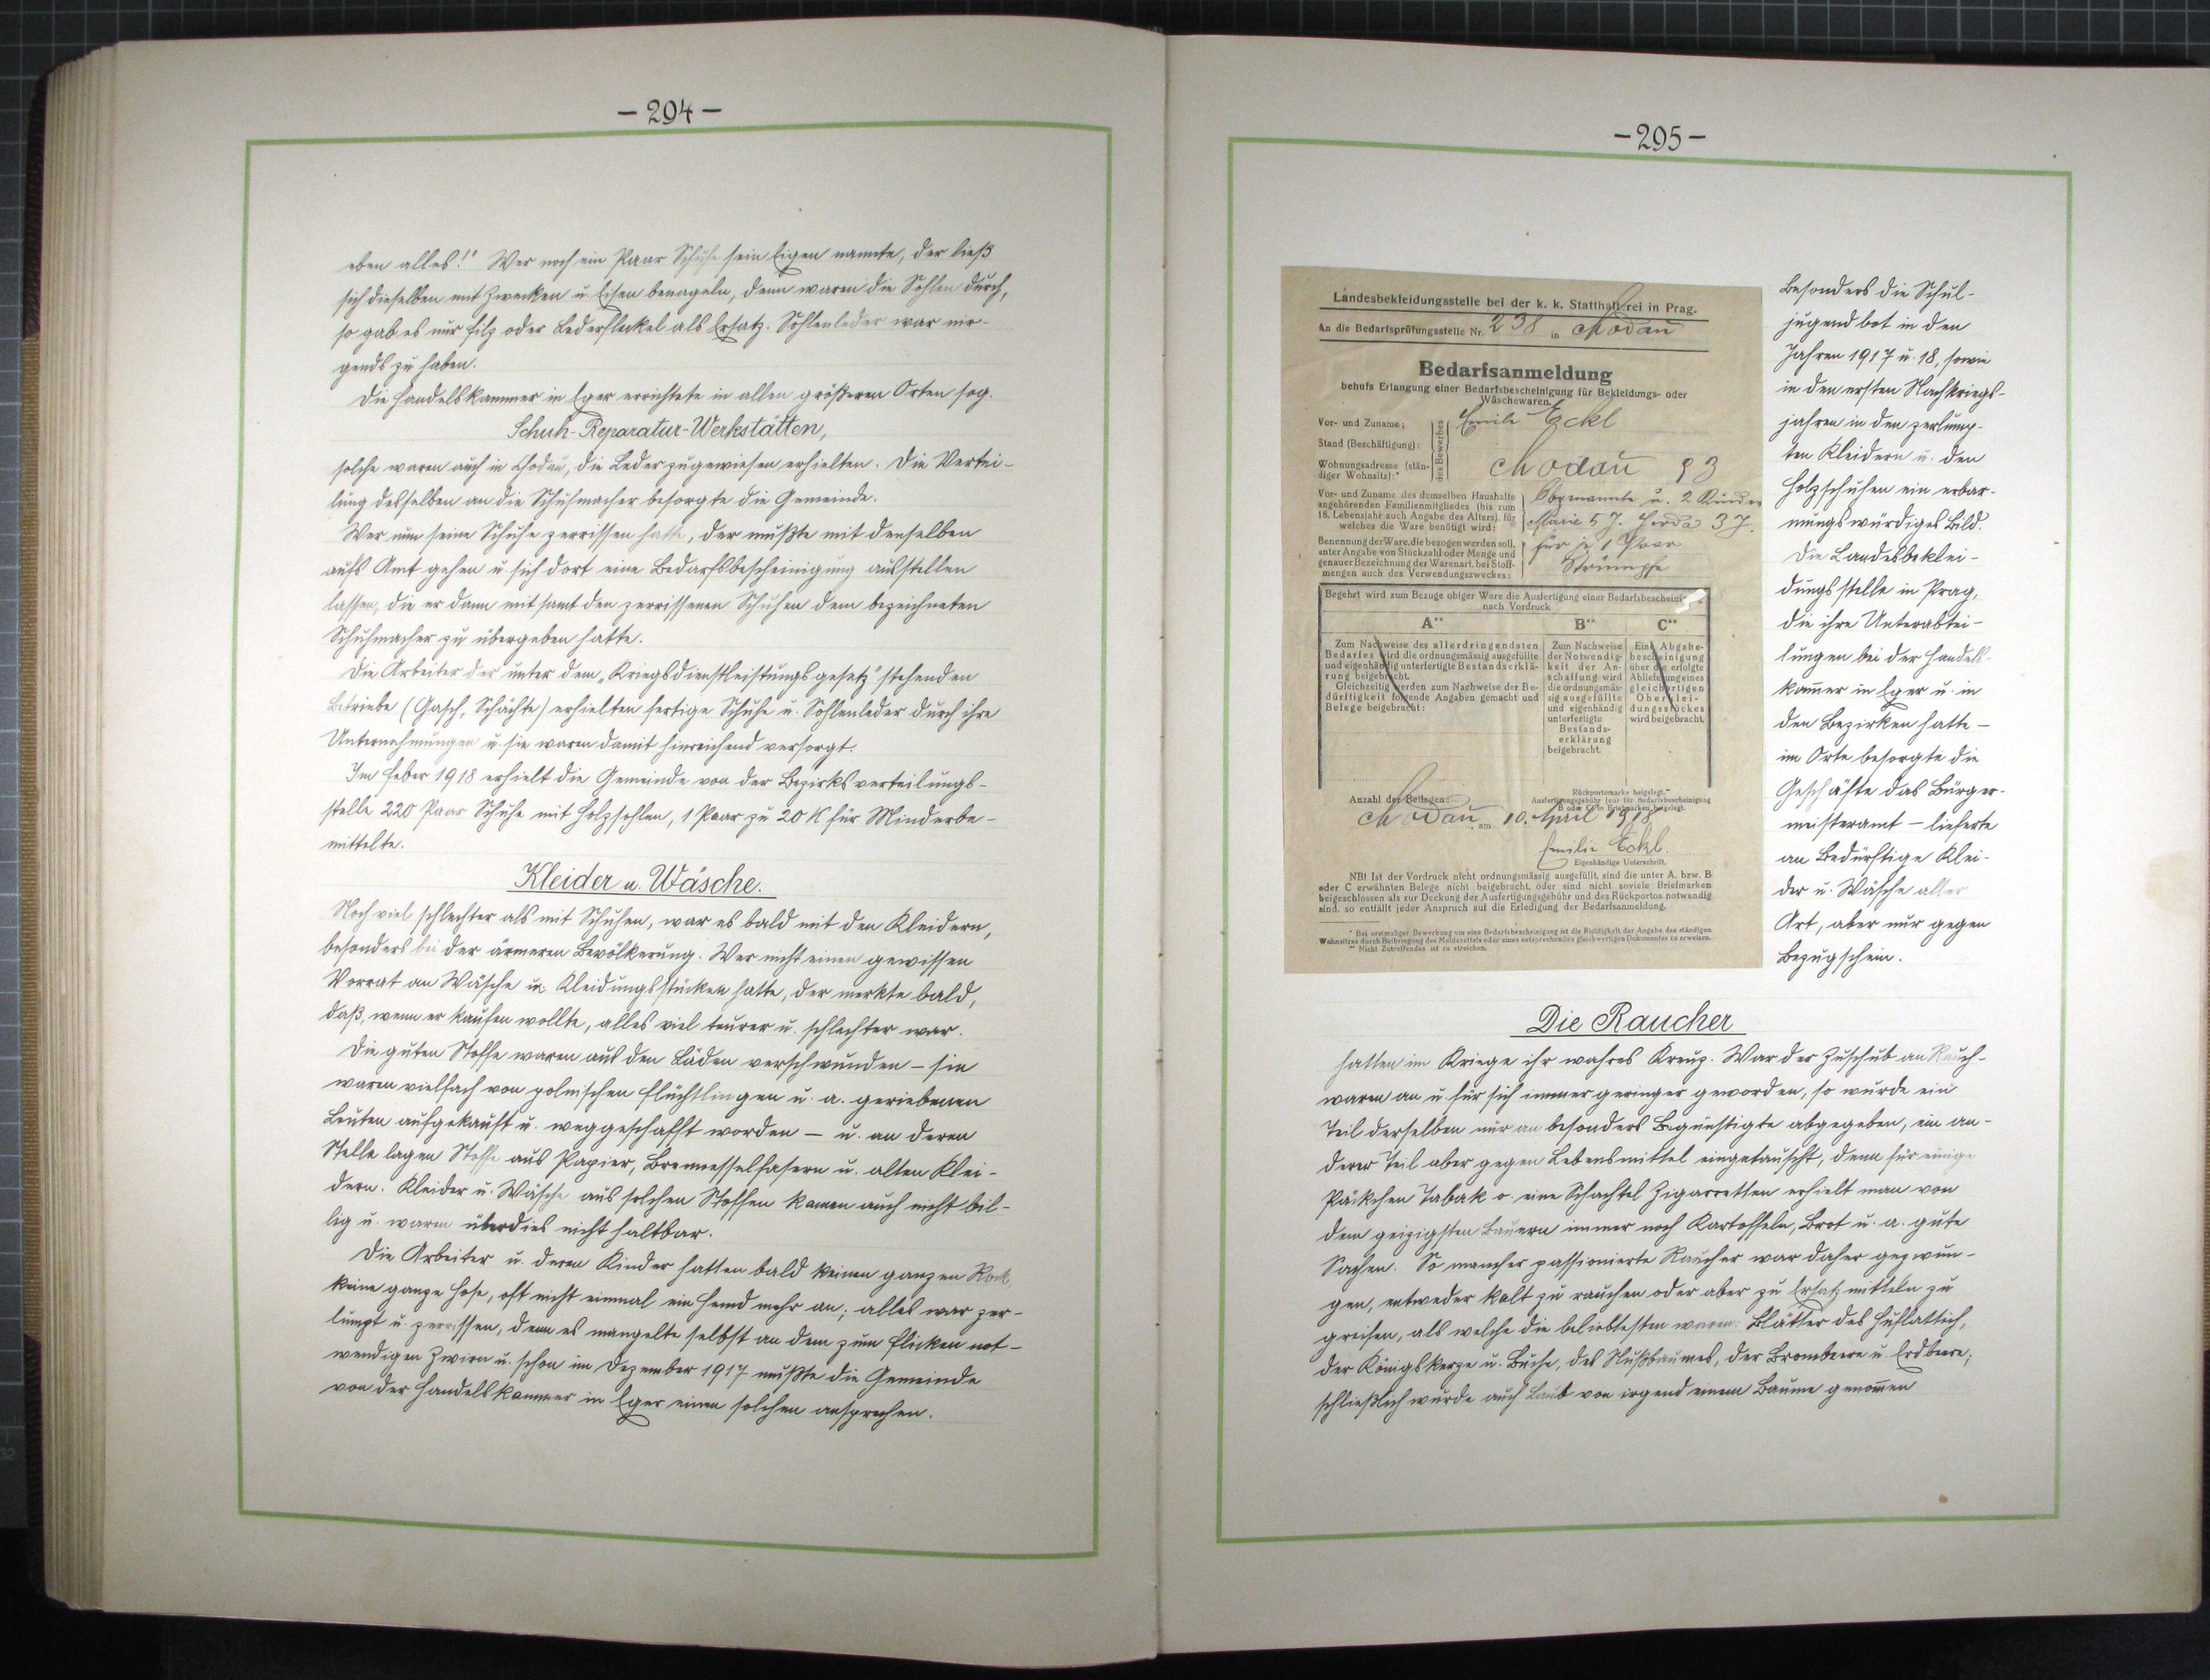 — 294 —
eben alles!" Wer noch ein Paar Schuhe sein Eigen nannte, der ließ
sich dieselben mit Zwecken u. Eisen benageln, denn waren die Sohlen durch,
so gab es nur Filz oder Lederfleckel als Ersatz. Sohlenleder war nir-
gends zu haben.
Die Handelskammer in Eger errichtete in allen größeren Orten sog.
Schuh-Reparatur-Werkstätten,
solche waren auch in Chodau, die Leder zugewiesen erhielten. Die Vertei-
lung desselben an die Schuhmacher besorgte die Gemeinde.
Wer nun seine Schuhe zerrissen hatte, der mußte mit denselben
aufs Amt gehen u. sich dort eine Bedarfsbescheinigung ausstellen
lassen, die er dann mit samt den zerrissenen Schuhen dem bezeichneten
Schuhmacher zu übergeben hatte.
Die Arbeiter der unter dem „Kriegsdienstleistungsgesetz" stehenden
Betriebe (Gasch, Schächte) erhielten fertige Schuhe u. Sohlenleder durch ihre
Unternehmungen u. sie waren damit hinreichend versorgt.
Im Feber 1918 erhielt die Gemeinde von der Bezirksverteilungs-
stelle 220 Paar Schuhe mit Holzsohlen, 1 Paar zu 20 K für Minderbe-
mittelte.
Kleider u. Wäsche.
Noch viel schlechter als mit Schuhen, war es bald mit den Kleidern,
besonders bei der ärmeren Bevölkerung. Wer nicht einen gewissen
Vorrat an Wäsche u. Kleidungsstücken hatte, der merkte bald,
daß, wenn er kaufen wollte, alles viel teurer u. schlechter war.
Die guten Stoffe waren aus den Läden verschwunden – sie
waren vielfach von polnischen Flüchtlingen u. a. geriebenen
Leuten aufgekauft u. weggeschafft worden – u. an deren
Stelle lagen Stoffe aus Papier, Brennesselfasern u. alten Klei-
dern. Kleider u. Wäsche aus solchen Stoffen kamen auch nicht bil-
lig u. waren überdies nicht haltbar.
Die Arbeiter u. deren Kinder hatten bald keinen ganzen Rock
keine ganze Hose, oft nicht einmal ein Hemd mehr an; alles war zer-
lumpt u. zerrissen, denn es mangelte selbst an dem zum Flicken not-
wendigen Zwirn u. schon im Dezember 1917 mußte die Gemeinde
von der Handelskammer in Eger einen solchen ansprechen.
— 295 —
Landesbekleidungsstelle bei der k. k. Statthalterei in Prag.
An die Bedarfsprüfungsstelle Nr. 238 in Chodau
Bedarfsanmeldung
behufs Erlangung einer Bedarfsbescheinigung für Bekleidungs- oder
Wäschewaren.
Vor- und Zuname: Emilie Eckl
Stand (Beschäftigung):
des Bewerbes
Wohnungsadresse (stän-
diger Wohnsitz):* Chodau 93
Vor- und Zuname des demselben Haushalte
angehörenden Familienmitgliedes (bis zum
18. Lebensjahr auch Angabe des Alters), für
welches die Ware benötigt wird:
Obgenannte u. 2 Kinder
Marie 5 J. 3 J.
Benennung der Ware, die bezogen werden soll,
unter Angabe von Stückzahl oder Menge und
genauer Bezeichnung der Warenart, bei Stoff-
mengen auch des Verwendungszweckes:
für je 1 Paar
Strümpfe
Begehrt wird zum Bezuge obiger Ware die Ausfertigung einer
nach Vordruck
A**
Zum Nachweise des allerdringendsten
Bedarfes wird die ordnungsmässig ausgefüllte
und eigenhändig unterfertigte Bestandserklä-
rung beigebracht.
Gleichzeitig werden zum Nachweise der Be-
dürftigkeit folgende Angaben gemacht und
Belege beigebracht:
B**
Zum Nachweise
der Notwendig-
keit der An-
schaffung wird
die ordnungsmäs-
sig ausgefüllte
und eigenhändig
unterfertigte
Bestands-
erklärung
beigebracht.
C**
Eine Abgabe-
bescheinigung
über die erfolgte
Ablieferung eines
gleichartigen
Oberklei-
dungsstückes
wird beigebracht.
Anzahl der Beilagen:
Rückportomarke beigelegt.**
Ausfertigungsgebühr (nur für Bedarfsbescheinigung
B oder C) in Briefmarken beigelegt.
Chodau, am 10. April 1918
Emilie Eckl.
Eigenhändige Unterschrift.
NB! Ist der Vordruck nicht ordnungsmässig ausgefüllt, sind die unter A. bzw. B
oder C erwähnten Belege nicht beigebracht, oder sind nicht soviele Briefmarken
beigeschlossen als zur Deckung der Ausfertigungsgebühr und des Rückportos notwendig
sind, so entfällt jeder Anspruch auf die Erledigung der Bedarfsanmeldung.
* Bei erstmaliger Bewerbung um eine Bedarfsbescheinigung ist die Richtigkeit der Angabe des ständigen
Wohnsitzes durch Beibringung des Meldezettels oder eines entsprechenden gleichwertigen Dokumentes zu erweisen.
** Nicht Zutreffendes ist zu streichen.
Besonders die Schul-
jugend bot in den
Jahren 1917 u. 18, sowie
in den ersten Nachkriegs-
jahren in den zerlump-
ten Kleidern u. den
Holzschuhen ein erbar-
mungswürdiges Bild.
Die Landesbeklei-
dungsstelle in Prag,
die ihre Unterabtei-
lungen bei der Handels-
kam̄er in Eger u. in
den Bezirken hatte –
im Orte besorgte die
Geschäfte das Bürger-
meisteramt – lieferte
an Bedürftige Klei-
der u. Wäsche aller
Art, aber nur gegen
Bezugschein.
Die Raucher
hatten im Kriege ihr wahres Kreuz. War der Zuschub an Rauch-
waren an u. für sich immer geringer geworden, so wurde ein
Teil derselben nur an besonders Begünstigte abgegeben, ein an-
derer Teil aber gegen Lebensmittel eingetauscht, denn für einige
Päckchen Tabak o. eine Schachtel Zigarretten erhielt man von
dem geizigsten Bauern immer noch Kartoffeln, Brot u. a. gute
Sachen. So mancher passionierte Raucher war daher gezwun-
gen, entweder kalt zu rauchen oder aber zu Ersatzmitteln zu
greifen, als welche die beliebtesten waren: Blätter des Huflattich,
der Königskerze u. Buche, des Nußbaumes, der Brombeere u. Erdbeere;
schließlich wurde auch Laub von irgend einem Baume genom̄en